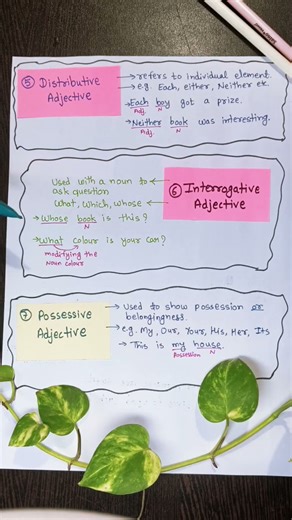 ⑤ Distributive
Adjective
→ refers to individual element.
→ e.g. Each, either, Neither etc.
→ Each boy got a prize.
Adj. N
→ Neither book was interesting.
Adj. N
⑥ Interrogative
Adjective
Used with a noun to ←
ask question
What, Which, whose ←
→ Whose book is this?
N
→ What colour is your car?
modifying the
Noun colour
⑦ Possessive
Adjective
→ Used to show possession or
belongingness.
→ e.g. My, Our, Your, His, Her, Its
→ This is my house.
Possession N